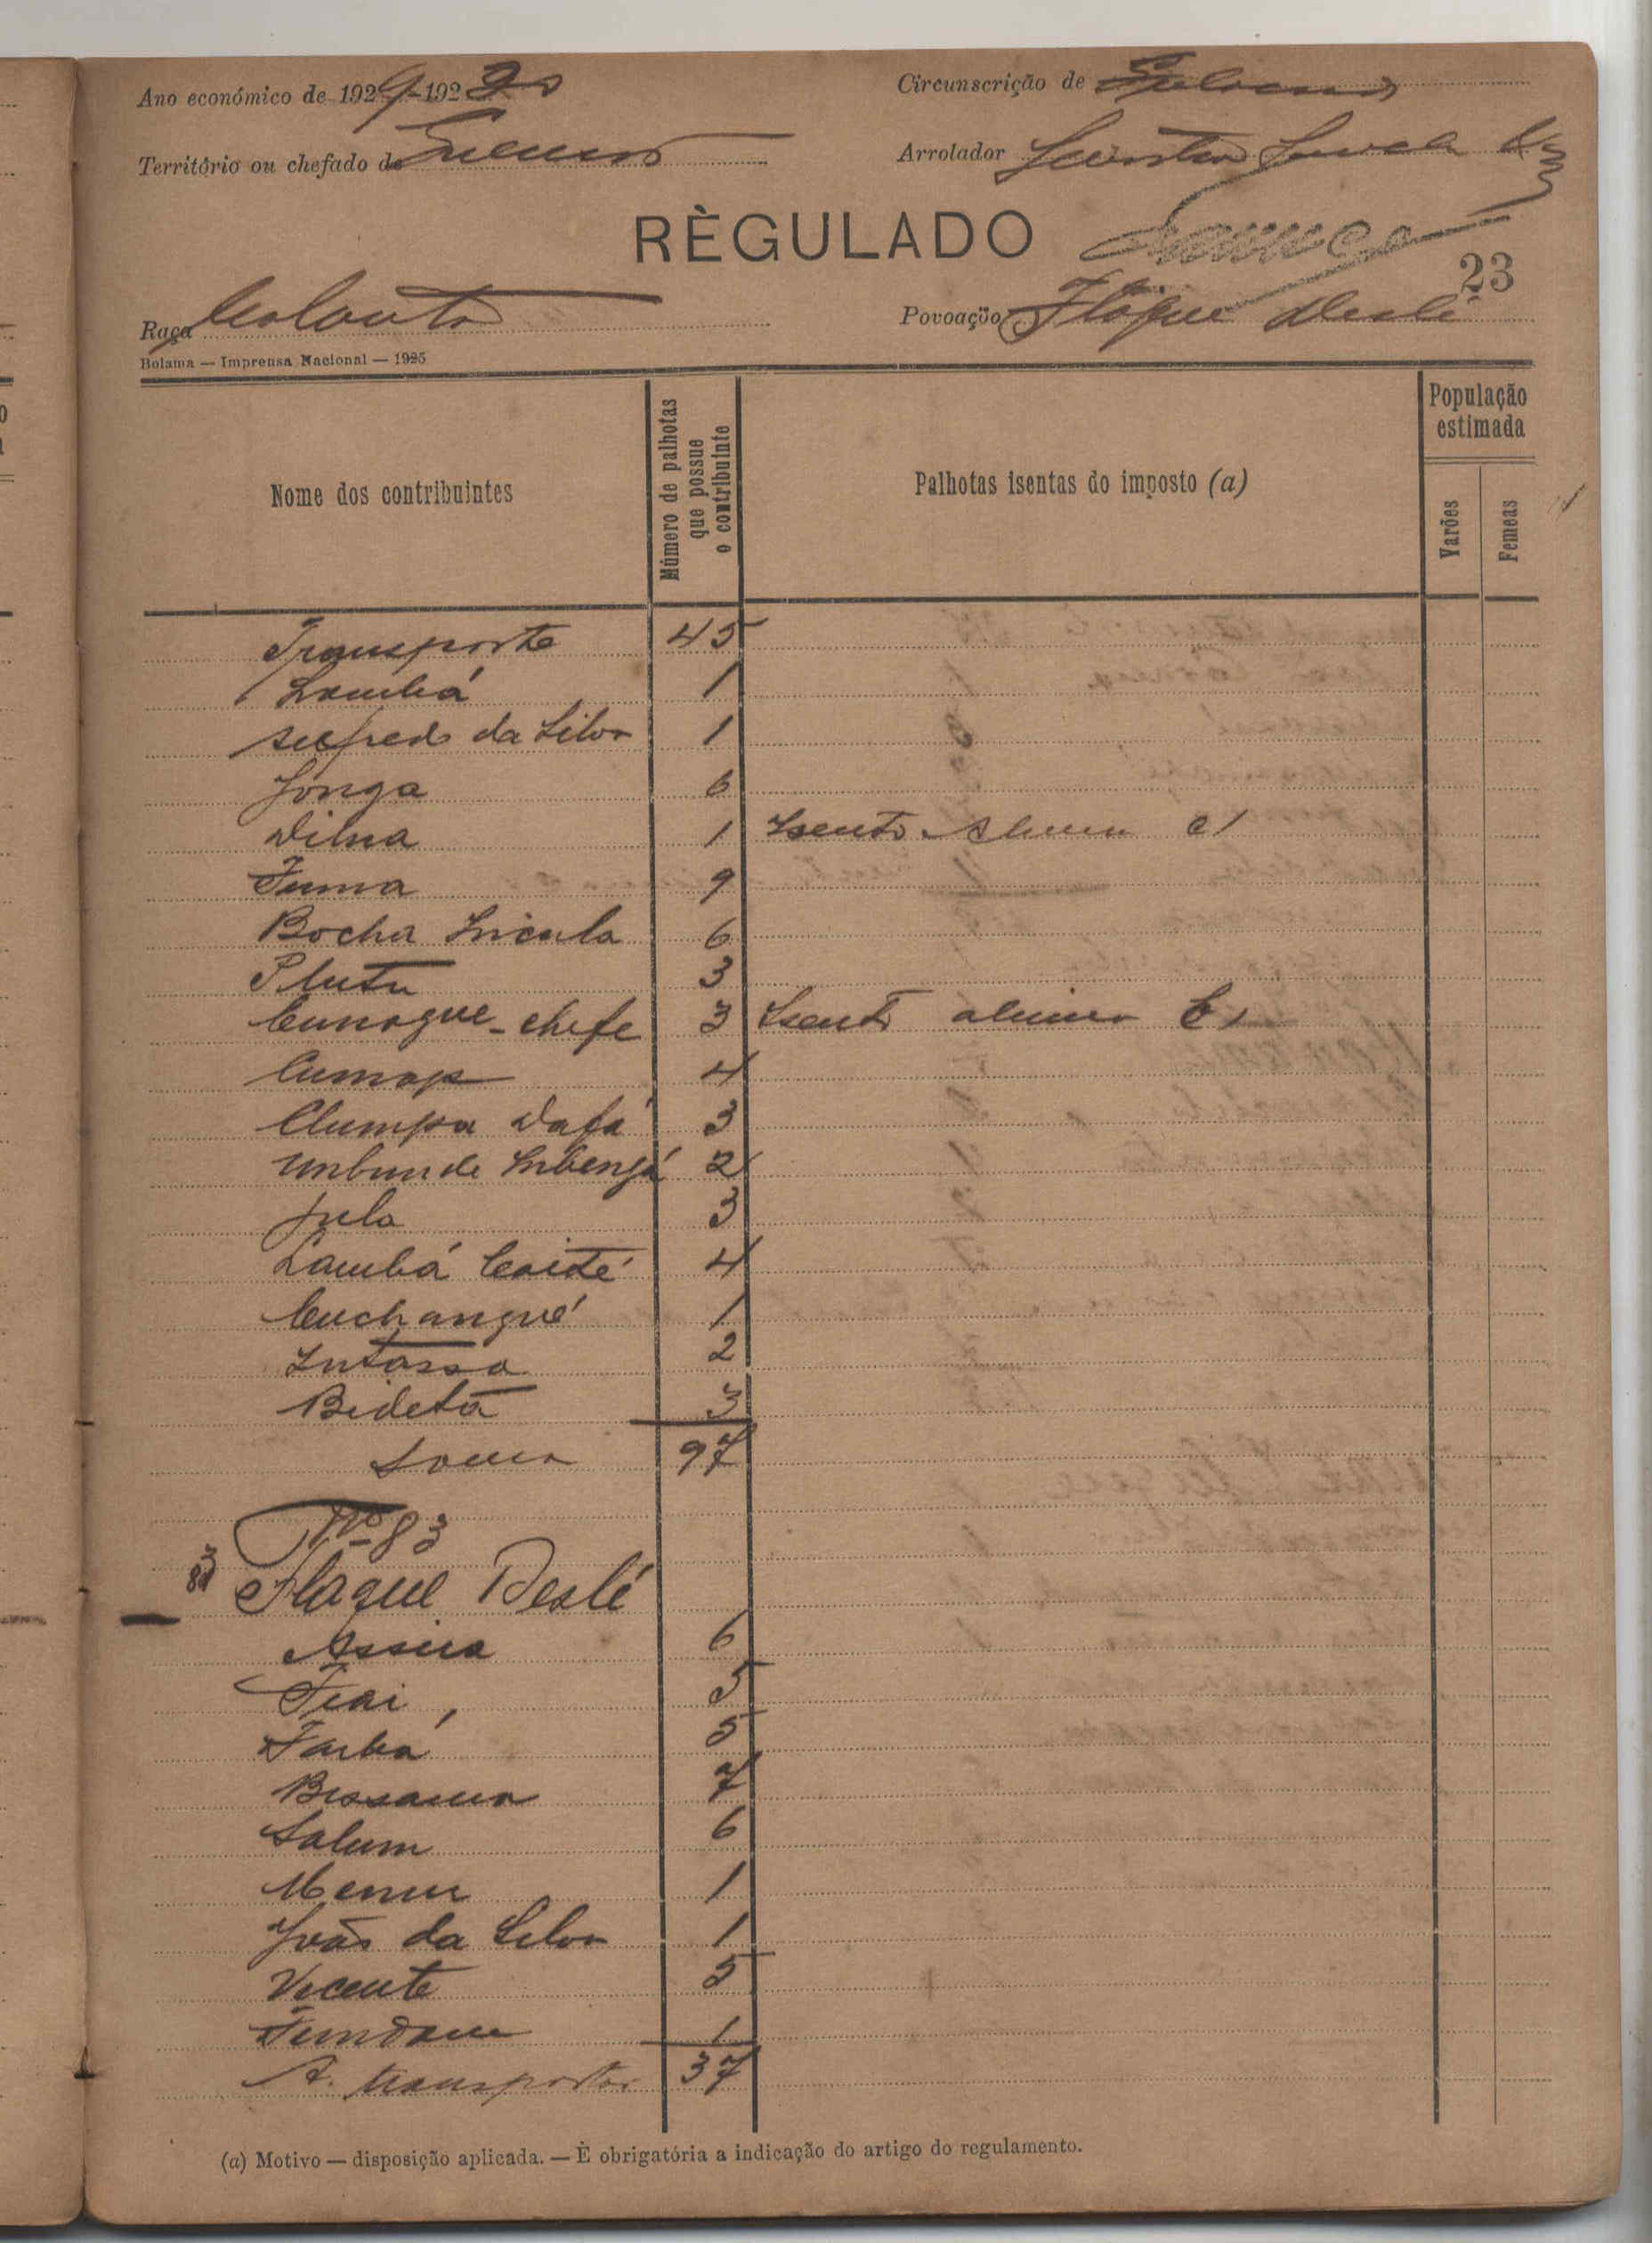 Ano económico de 1929-1930
Circunscrição de
Território ou chefado de
Arrolador
RÈGULADO
23
Raça
Povoação Flaque Deslé
Bolama — Imprensa Nacional — 1925
Nome dos contribuintes
Número de palhotas que possue o contribuinte
Palhotas isentas do imposto (a)
População estimada
Varões
Femeas
Transporte 45
Lambá 1
Alfredo da Silva 1
Jonga 6
Dilna 1 Isento Alinea c)
Funna 9
Bocha Incula 6
3
Cunogue - chefe 3 Isento alinea b)
Cumop 4
Clumpa Dafá 3
Unbunde 2
Jula 3
Lambá Coidé 4
Cuchangué 1
Intassa 2
Bidetá 3
Soma 97
Nº 83
83 Flaque Deslé
6
Fiai 5
Farbá 5
Bissama 7
Salum 6
1
João da Silva 1
Vicente 5
1
A transportar 37
(a) Motivo — disposição aplicada. — È obrigatória a indicação do artigo do regulamento.